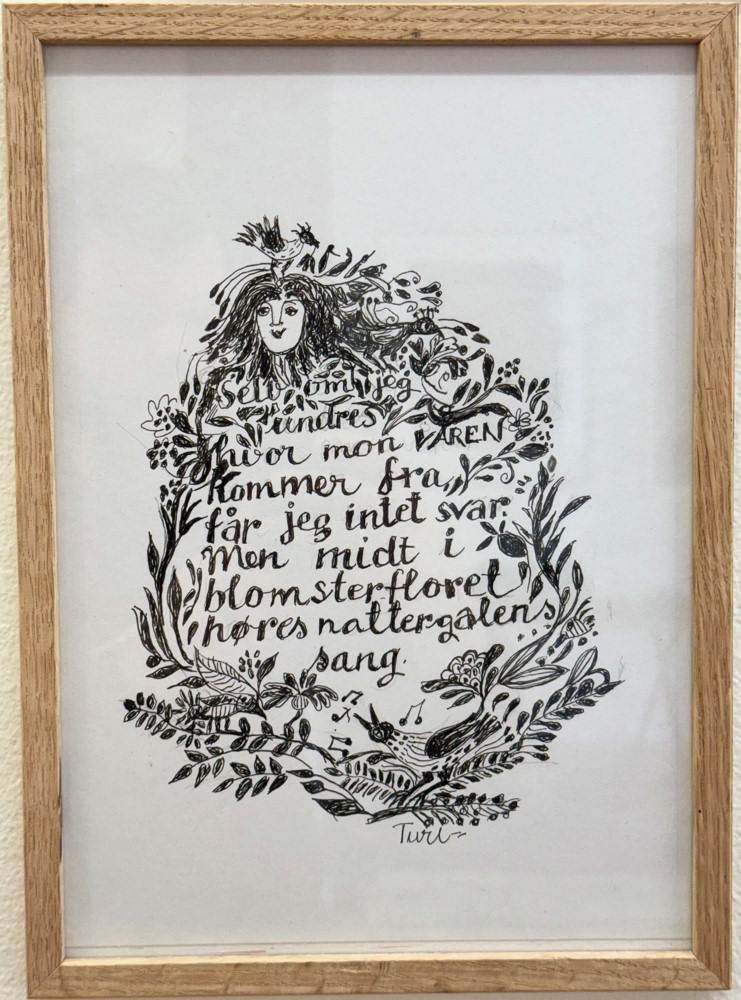 Selv om jeg
undres
hvor mon VÅREN
kommer fra,
får jeg intet svar.
Men midt i
blomsterfloret
høres nattergalens
sang.
Turi